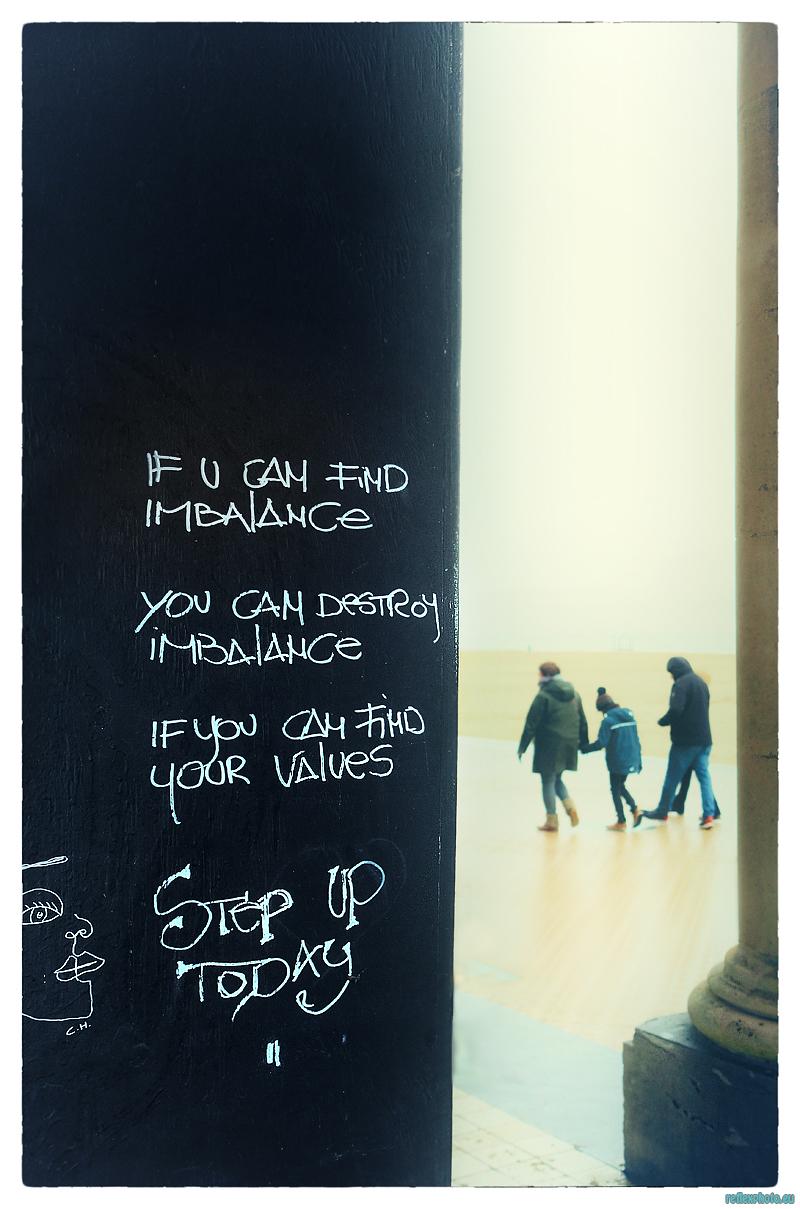 IF U CAN FIND
IMBALANCE
YOU CAN DESTROY
IMBALANCE
IF YOU CAN FIND
YOUR VALUES
STEP UP
TODAY
C.H.
reflexphoto.eu